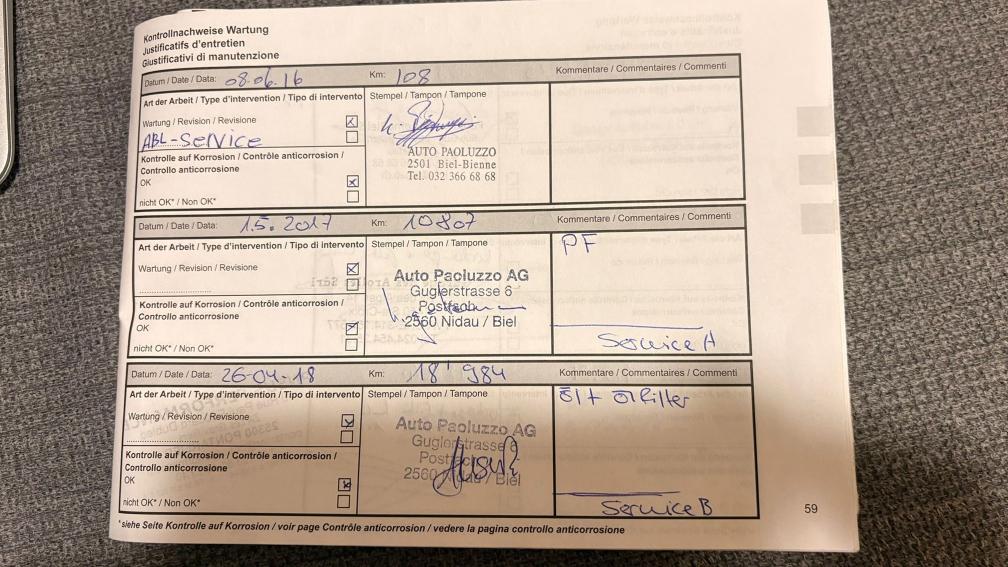 Kontrollnachweise Wartung
Justificatifs d'entretien
Giustificativi di manutenzione
Datum / Date / Data: 08.06.16 Km: 108 Kommentare / Commentaires / Commenti
Art der Arbeit / Type d'intervention / Tipo di intervento Stempel / Tampon / Tampone
Wartung / Revision / Revisione
ABL-Service
Kontrolle auf Korrosion / Contrôle anticorrosion /
Controllo anticorrosione
OK
nicht OK* / Non OK*
AUTO PAOLUZZO
2501 Biel-Bienne
Tel. 032 366 68 68
Datum / Date / Data: 1.5.2017 Km: 10807 Kommentare / Commentaires / Commenti
Art der Arbeit / Type d'intervention / Tipo di intervento Stempel / Tampon / Tampone
PF
Wartung / Revision / Revisione
Kontrolle auf Korrosion / Contrôle anticorrosion /
Controllo anticorrosione
OK
nicht OK* / Non OK*
Auto Paoluzzo AG
Guglerstrasse 6
Postfach
2560 Nidau / Biel
Service A
Datum / Date / Data: 26-04-18 Km: 18'984 Kommentare / Commentaires / Commenti
Art der Arbeit / Type d'intervention / Tipo di intervento Stempel / Tampon / Tampone
Öl + Ölfilter
Wartung / Revision / Revisione
Kontrolle auf Korrosion / Contrôle anticorrosion /
Controllo anticorrosione
OK
nicht OK* / Non OK*
Auto Paoluzzo AG
Guglerstrasse 6
Postfach
2560 Nidau / Biel
Service B
*siehe Seite Kontrolle auf Korrosion / voir page Contrôle anticorrosion / vedere la pagina controllo anticorrosione
59